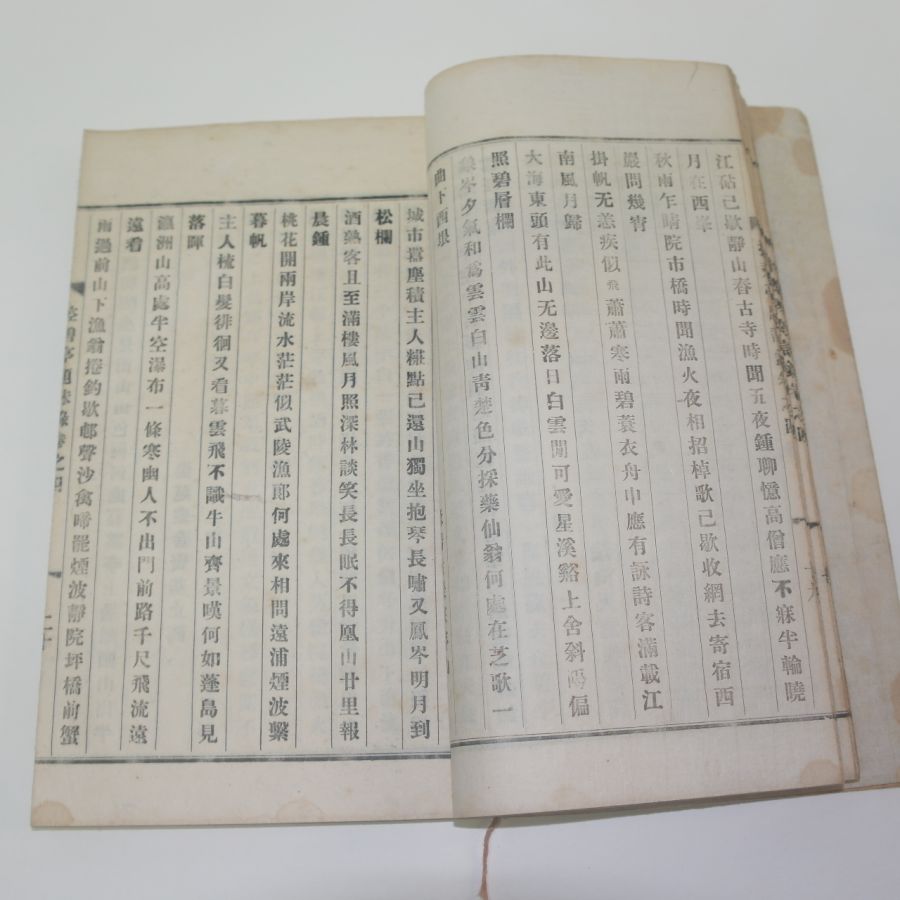 江砧已歇靜山春古寺時聞五夜鍾聊憶高僧應不寐半輪曉
月在西峯
秋雨乍晴院市橋時聞漁火夜相招棹歌已歇收網去寄宿西
巖問幾宵
掛帆无恙疾似飛蕭蕭寒雨碧蓑衣舟中應有詠詩客滿載江
南風月歸
大海東頭有此山无邊落日白雲閒可愛星溪谿上舍斜陽偏
照碧層欄
岑夕氣和爲雲雲白山靑楚色分採藥仙翁何處在芝歌一
曲下西
城市囂塵積主人糚點已還山獨坐抱琴長嘯又鳳岑明月到
松欄
酒熟客且至滿樓風月照深林談笑長長眠不得凰山廿里報
晨鍾
桃花開兩岸流水茫茫似武陵漁郞何處來相問遠浦煙波繫
暮帆
主人梳白髮徘徊又看暮雲飛不識牛山齊景嘆何如蓬島見
落暉
瀛洲山高處半空瀑布一條寒幽人不出門前路千尺飛流遠
遠看
雨過前山下漁翁捲釣歇邨聲沙禽啼罷煙波靜院坪橋前蟹
亭題
卷之四
二十